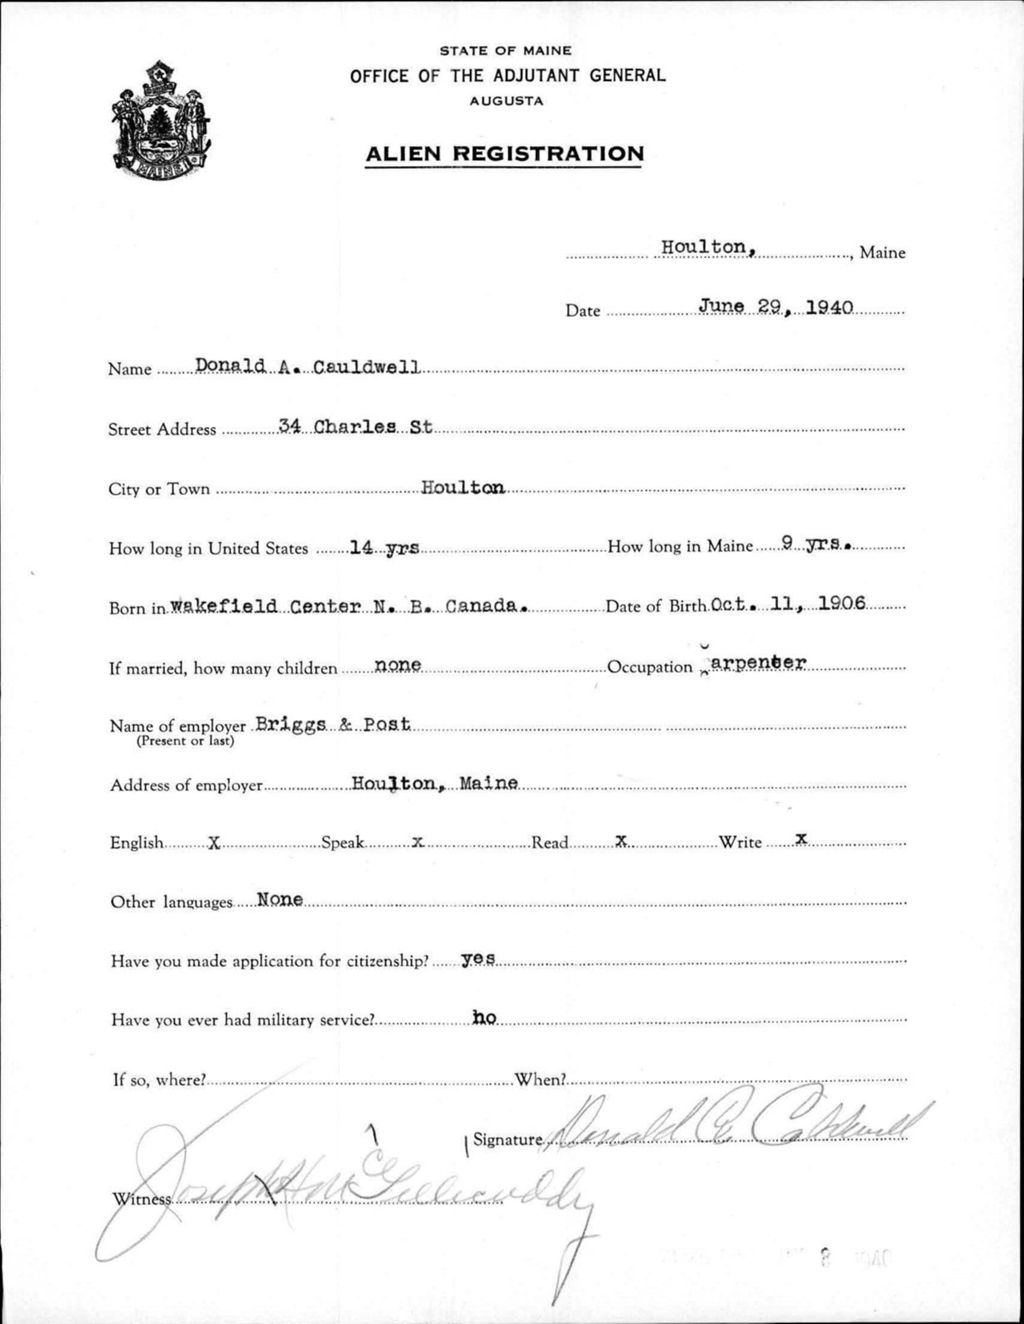 STATE OF MAINE
OFFICE OF THE ADJUTANT GENERAL
AUGUSTA
ALIEN REGISTRATION
MAINE
Houlton, , Maine
Date June 29, 1940
Name Donald A. Cauldwell
Street Address 34 Charles St
City or Town Houlton
How long in United States 14 yrs How long in Maine 9 yrs.
Born in Wakefield Center N. B. Canada. Date of Birth Oct. 11, 1906
If married, how many children none Occupation Carpenter
Name of employer Briggs & Post
(Present or last)
Address of employer Houlton, Maine
English X Speak X Read X Write X
Other languages None
Have you made application for citizenship? yes
Have you ever had military service? no
If so, where? When?
Signature Donald A Caldwell
Witness Joseph H McGillicuddy